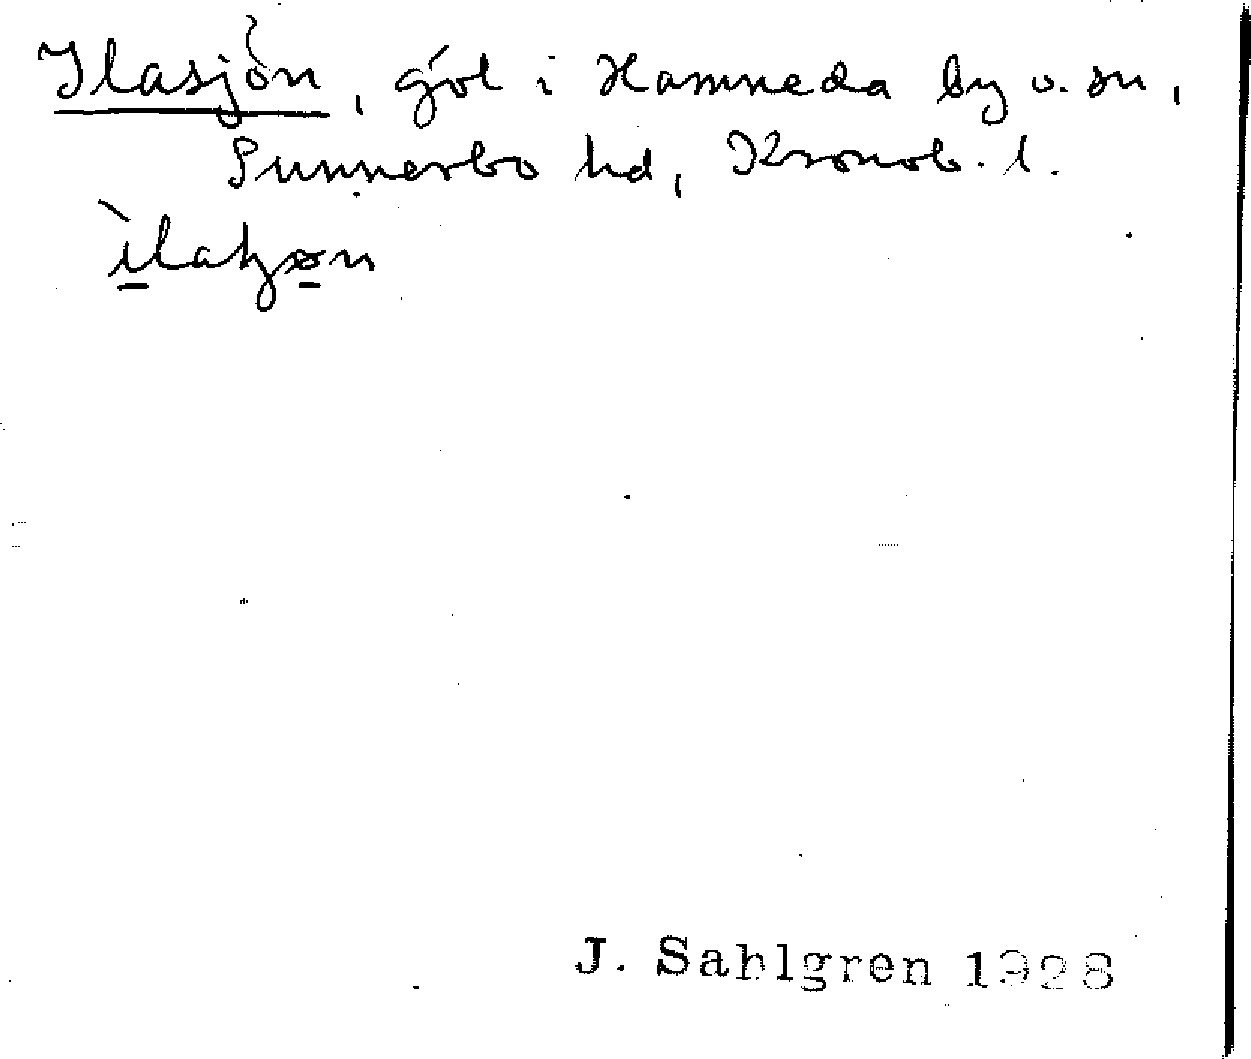 Ilasjön, göl i Hamneda by o. sn,
Sunnerbo hd, Kronob. l.
J. Sahlgren 1928